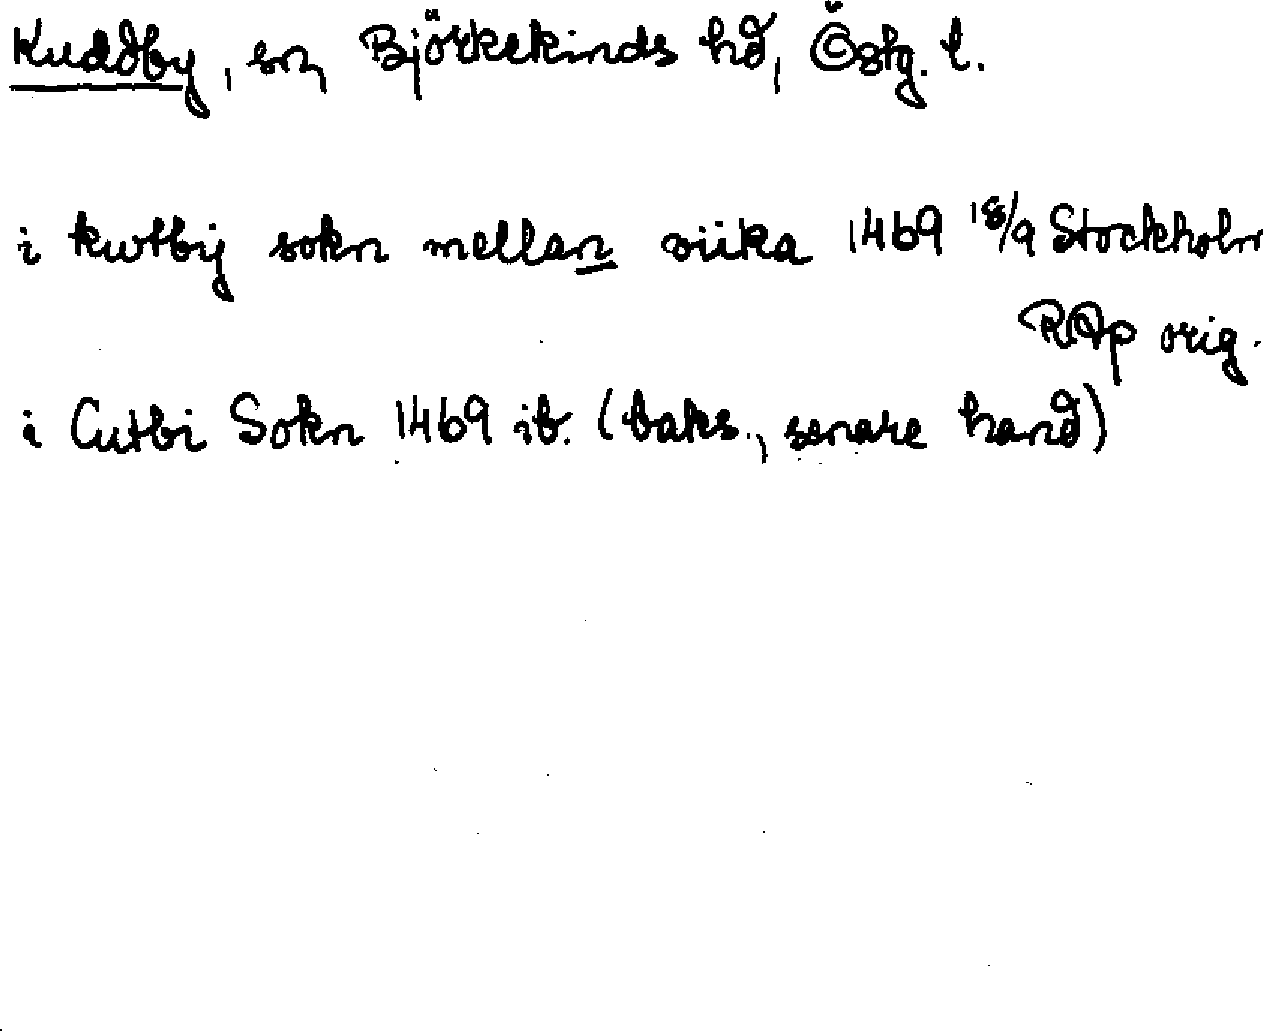 Kuddby, sn, Björkekinds hd, Östg. l.
i kwtbij sokn mellan viika 1469 18/9 Stockholm
RAp orig.
i Cutbi Sokn 1469 ib. (baks., senare hand)